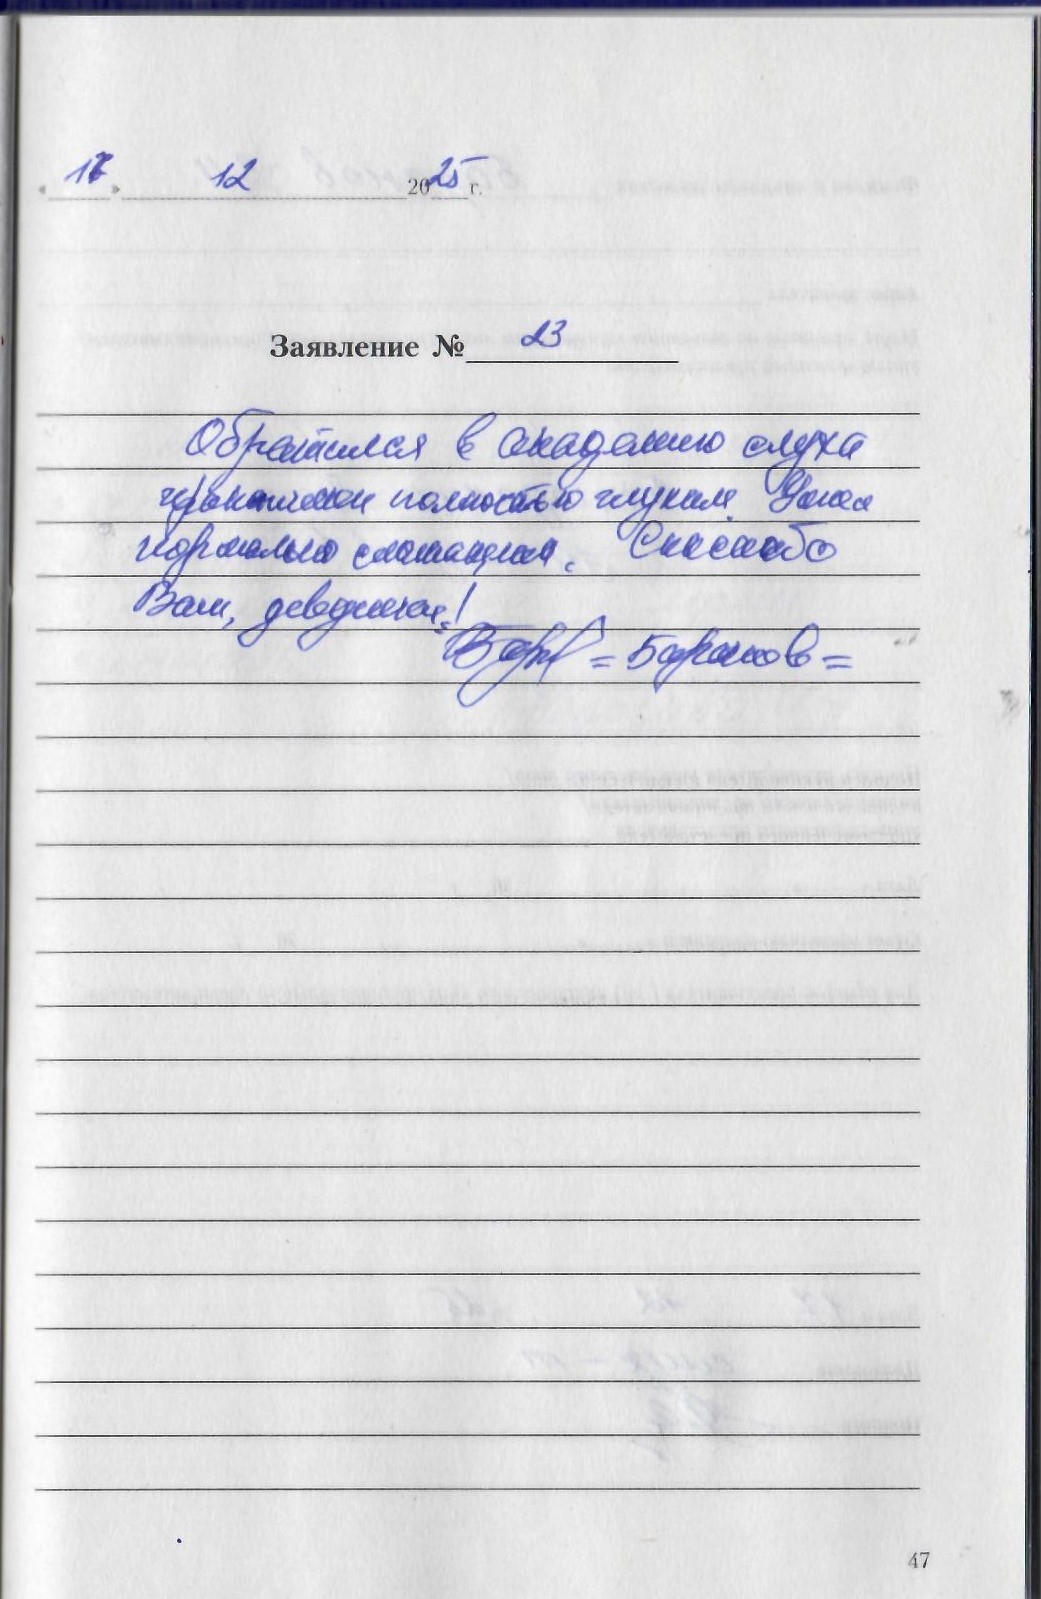 « 17 » 12 2025 г.
Заявление № 23
Обратился в академию слуха
практически полностью глухим. Ушел
нормально слышащим. Спасибо
Вам, девушки!
= Баранов =
47